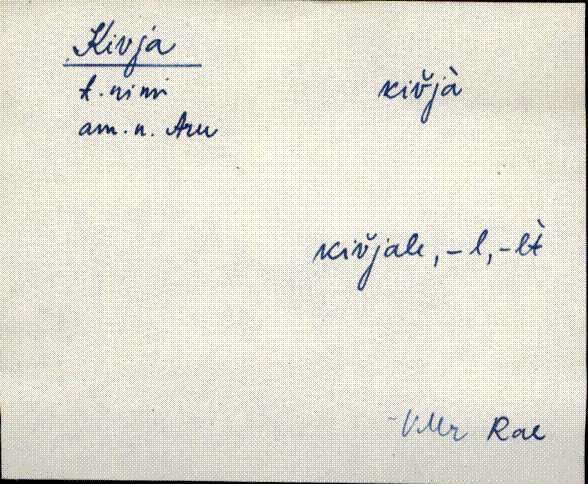 Kivja
t. nimi
am. n. Aru
kiv̆jà
kiv̆jale, -l, -lt̀
VMr Rae